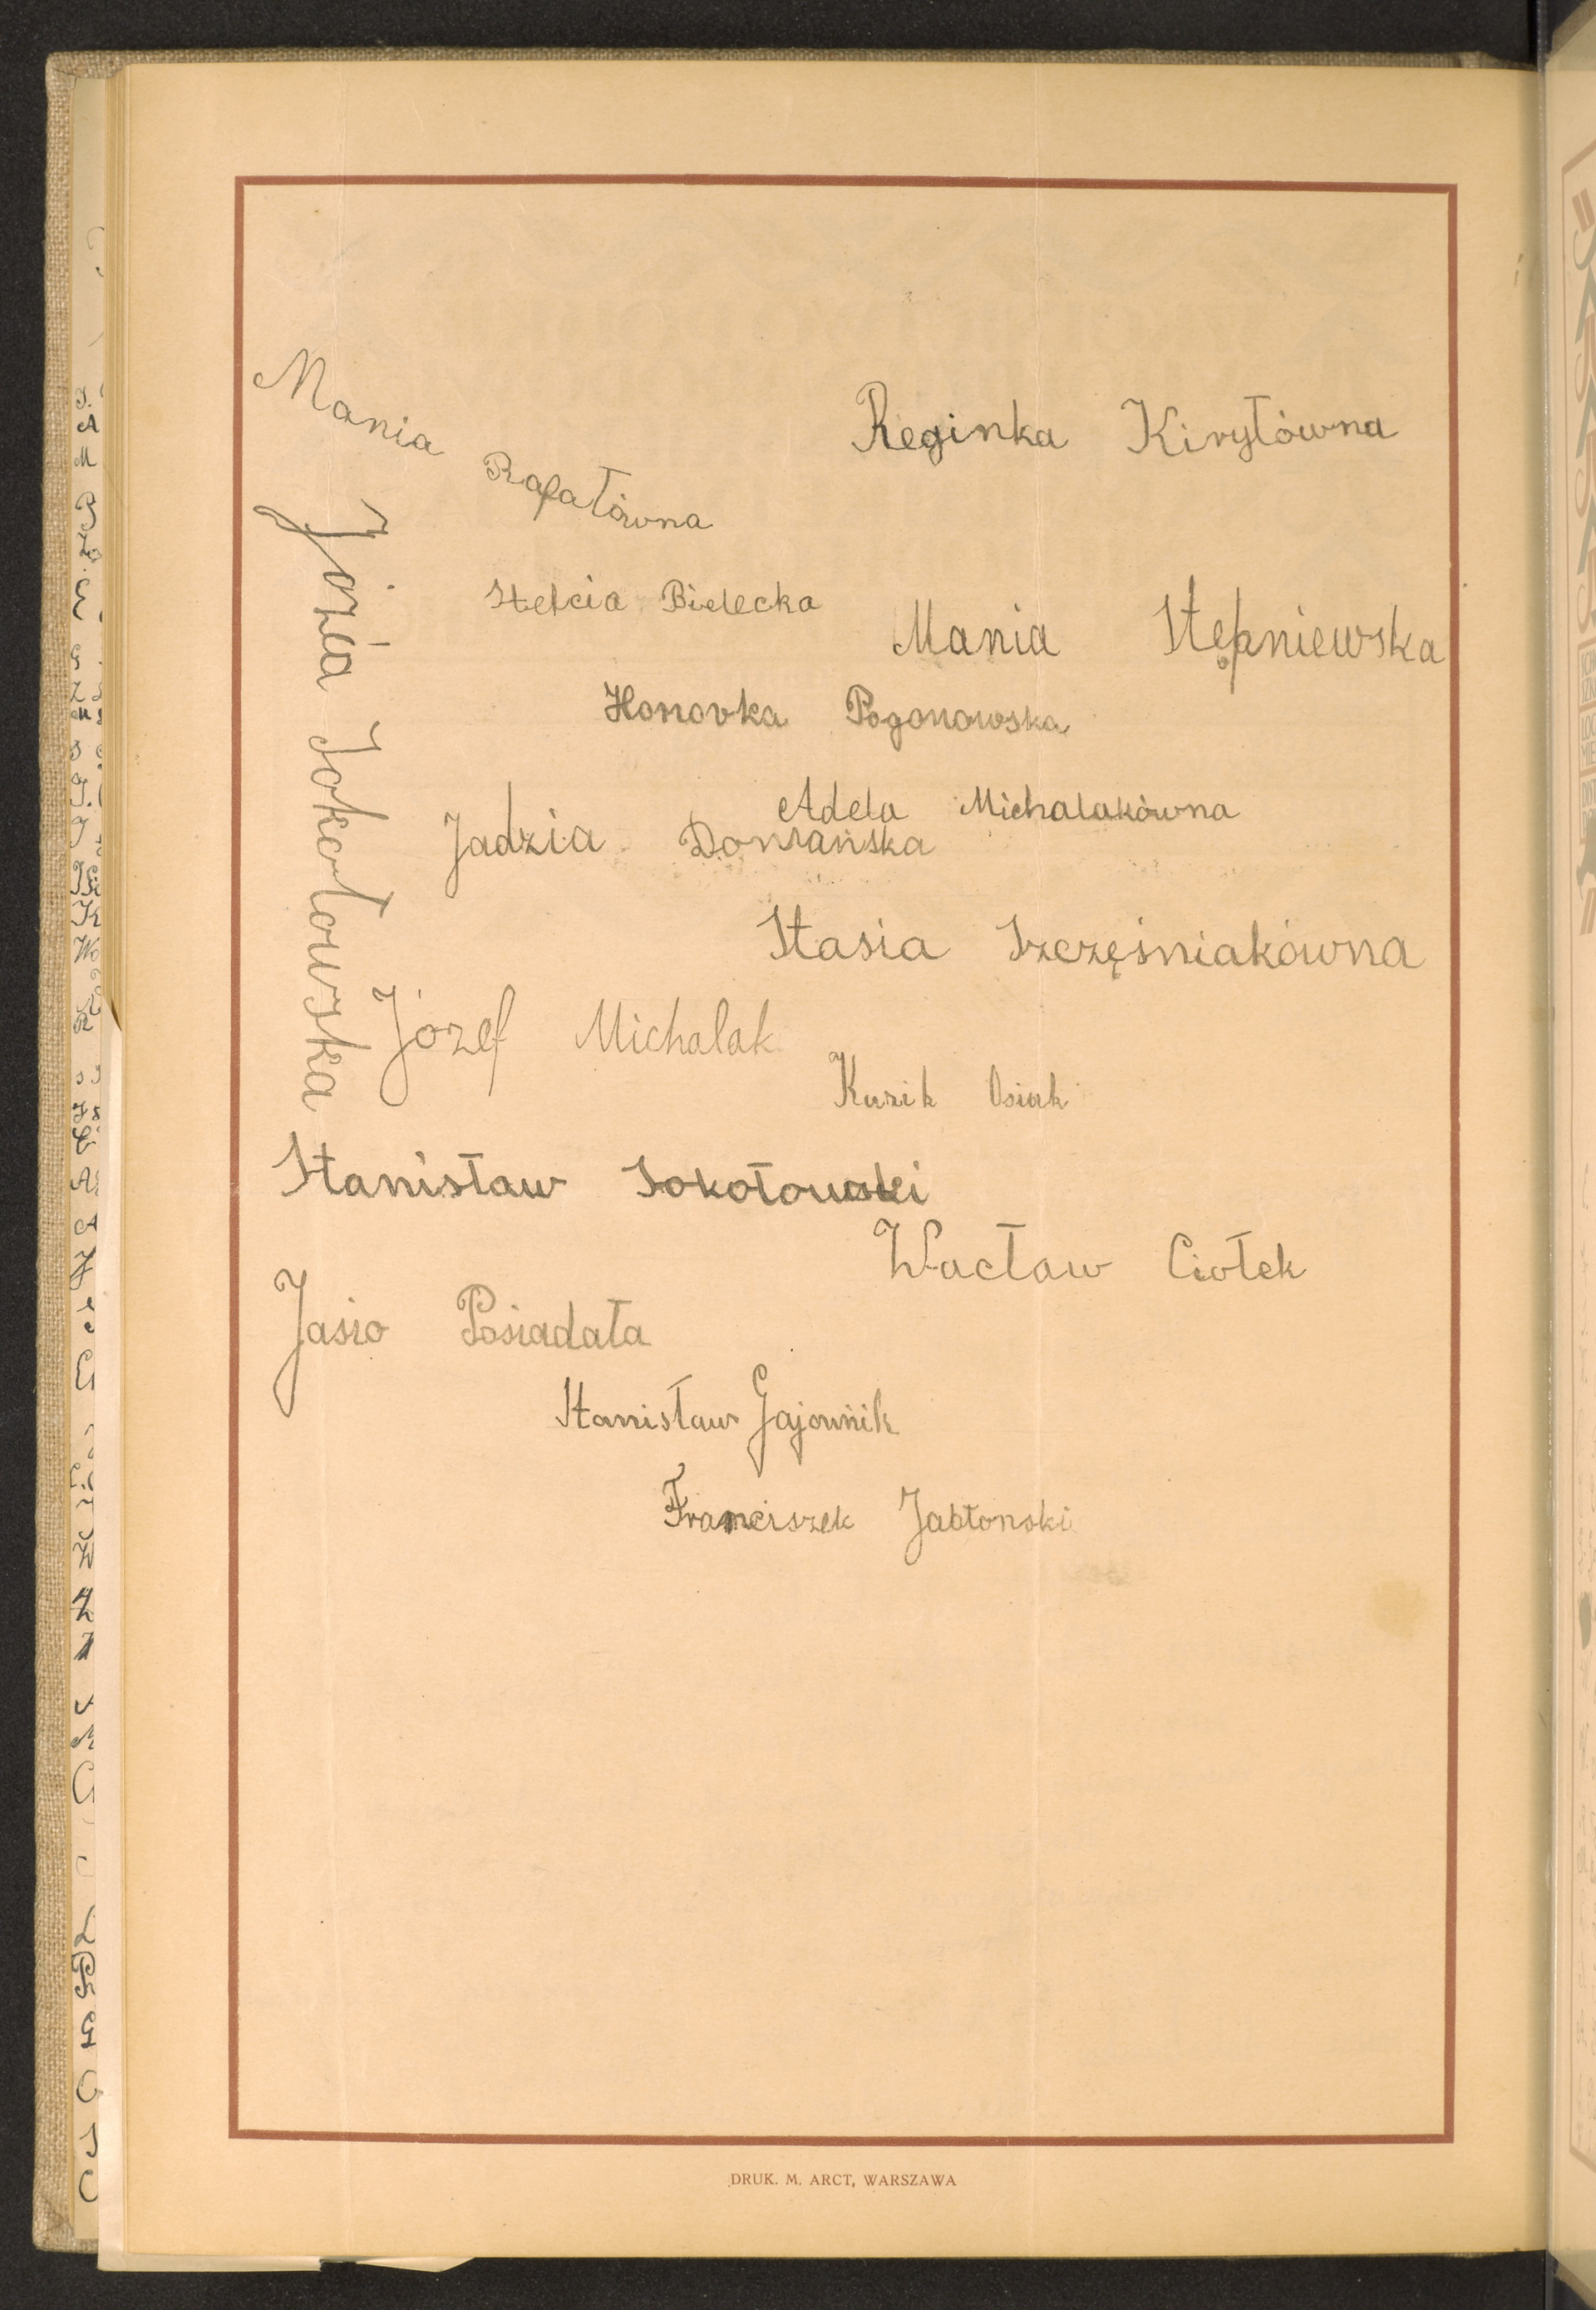 Mania Rafałówna
Reginka Kiryłówna
Józia Sokołowska
Stefcia Bielecka
Mania Stępniewska
Honorka Pogonowska
Adela Michalakówna
Jadzia Domańska
Stasia Szczęśniakówna
Józef Michalak
Kazik Osiak
Stanisław Sokołowski
Wacław Ciołek
Jasio Posiadała
Stanisław Gajownik
Franciszek Jabłonski
DRUK. M. ARCT, WARSZAWA